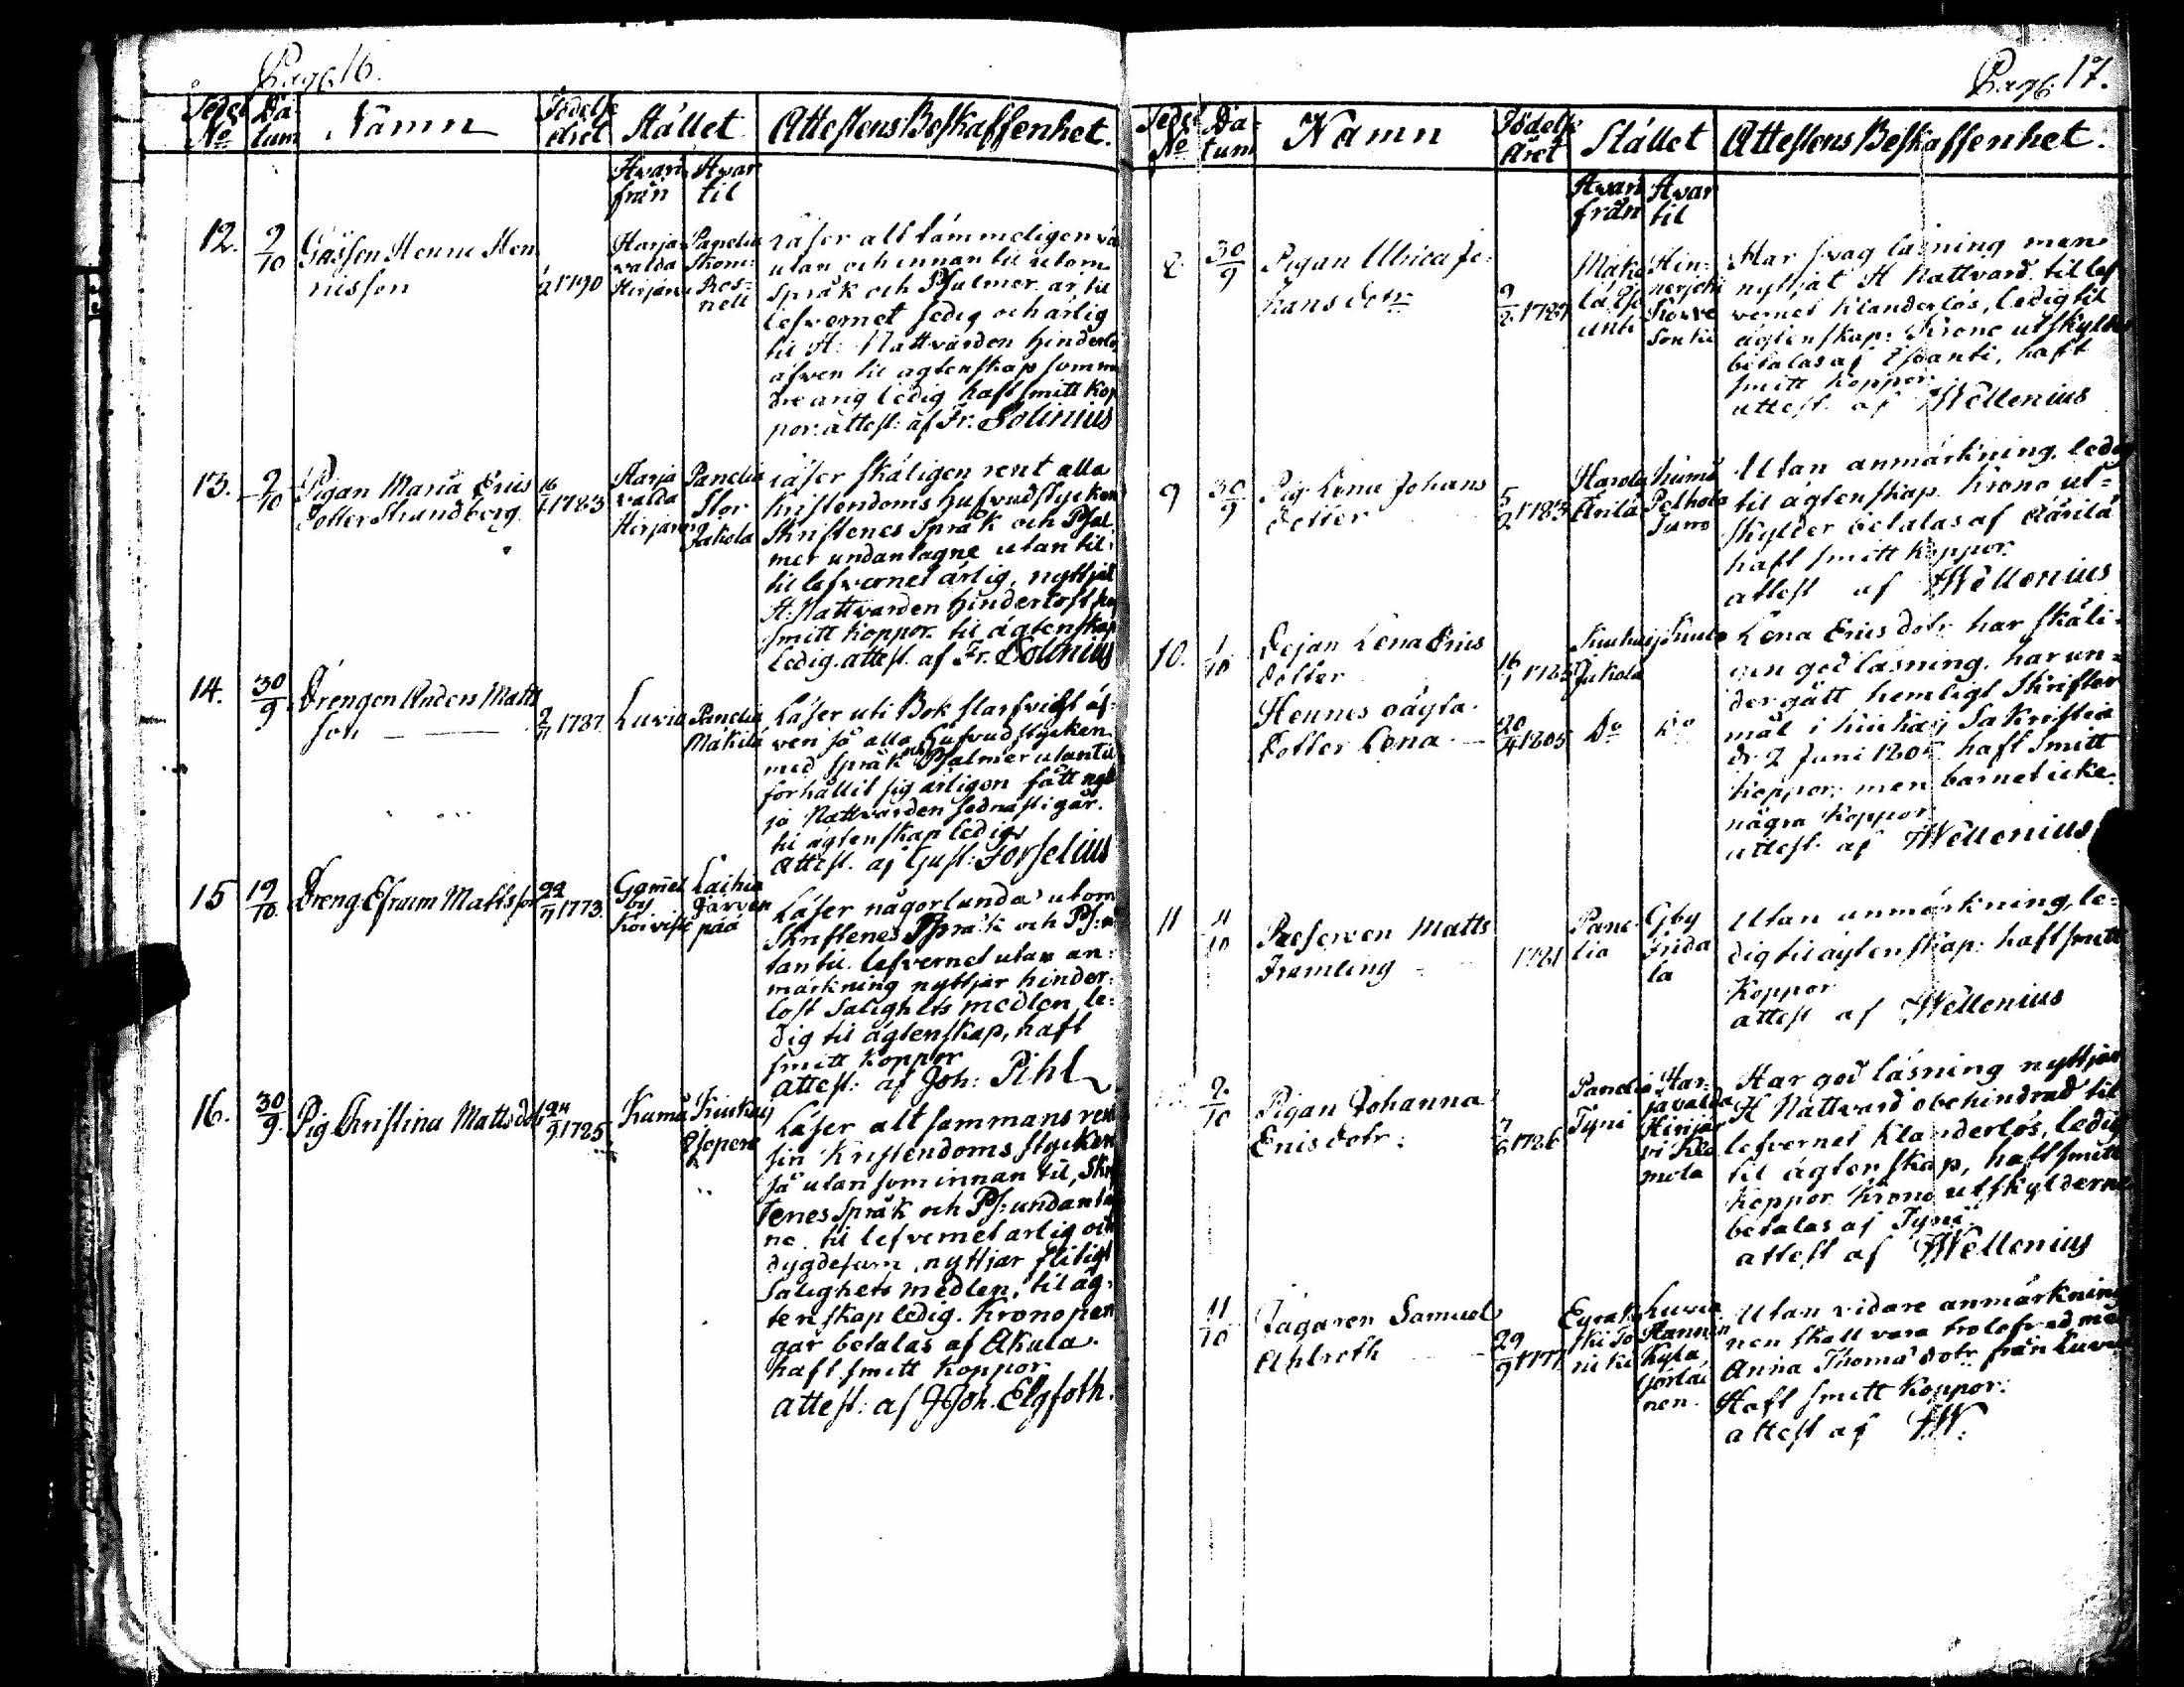 Pag. 16.
Sedel No Datum Namn Födelse året Stället Attestens Beskaffenhet.
Hvar ifrån Hvar til
12. 9/10 Gässen Henric Hen
ricsson
1790
Harja
valda
Hirjärvi
Panelia
Skom:
Ros=
nell
Läser alt sammeligen
utan och innan til utom
språk och Psalmer. är til
lefvernet sedig och ärlig
til H: Nattvarden hinderlö
äfven til ägtenskap som
ledig haft smitt kop
por. attest: af Fr. Polinius
13. 9/10 Pigan Maria Erics
dotter Strandberg.
16/1 1783
Harja
valda
Hirjärvi
Panelia
Stor
Jakola
Läser skäligen rent alla
Kristendoms hufvudstycken
Skriftenes Språk och Psal
mer undantagne utan til.
til lefvernet ärlig, nyttjat
H. Nattvarden hinderlöst
smitt koppor. til ägtenskap
ledig. attest. af Fr. Polinius
14. 30/9 Drengen Anders Matts
son
1787
Luvia
Panelia
Mäkilä
Läser uti Bok äf=
ven så alla hufvudstycken
med språk och Psalmer utantil
förhållit sig ärligen fått nytt
ja Nattvarden
til ägtenskap ledig
Attest. af Gust: Forselius
15 19/10 Dreng Efraim Mattsson
1773.
Gammel
by
Koiviste
Laihia
Järven
pää
Läser någorlunda utom
Skriftenes Språk och Ps: u
tantil. lefvernet utan an=
märkning nyttjar hinder=
löst Salighets medlen, le=
dig til ägtenskap, haft
smitt koppor
attest: af Joh: Pihl
16. 30/9 Pig Christina Mattsdotr
24/9 1785
Kumå
Kiukais
Läser alt sammans rent
sin Kristendoms stycken
så utan som innan til, Skrif
tenes språk och Ps: undantag
ne. til lefvernet ärlig och
dygdesam, nyttjar flitigt
Salighets medlen, til äg=
tenskap ledig. Krono pen
gar betalas af Akula.
haft smitt Koppor.
attest: af Joh. Elgfoth.
Pag. 17.
Sedel No Datum Namn Födelse Året Stället Attestens Beskaffenhet.
Hvar ifrån Hvar til
8. 30/9 Pigan Ulrica Jo=
hans dotr
Mäke
lä
Hin=
nerjoki
Korve
Har svag läsning men
nyttjat H Nattvard. til lef
vernet klanderlös, ledig til
ägtenskap: Krono utskylder
betalas af , haft
smitt koppor.
attest. af Wellenius
9 30/9 Pig. Lena Johans
dotter
5/2 1783
Harola
Arila
Kumå
Utan anmärkning, ledig
til ägtenskap. Krono ut=
skylder betalas af Aärilä
haft smitt koppor.
attest af Wellenius
10. 1/10 Dejan Lena Erics
dotter
16/1 1765
Kiukais
Jakola
Kumå
Hennes oägta
dotter Lena
20/4 1805 Do Do
Lena Ericsdotr. har skäli=
gen god läsning, har un=
dergått hemligt Skrifter
mål i Kiukais Sakristia
d. 2 Juni 1805. haft smitt
koppor, men barnet icke
några koppor
attest. af Wellenius
11 11/10 Reserven Matts
Framling
1781
Pane
lia
Gby
Frida
la
Utan anmärkning, le=
dig til ägtenskap: haft smitt
Koppor
attest af Wellenius
2/10 Pigan Johanna
Erics dotr.
7/6 1786
Panelia
Tyni
Har
javalda
Hirjär
vi
mola
Har god läsning nyttjar
H Nattvard obehindrad til
lefvernet klanderlös, ledig
til ägtenskap, haft smitt
koppor. Krono utskylderna
betalas af Tyni.
attest af Wellenius
11/10 Jägaren Samuel
Ahlroth
29/9 1777
Euraå
Luvia
Hannin
Kylä
nen.
Utan vidare anmärkning
men skall vara trolofvad med
Anna Thomas dotr från Luvia
Haft smitt Koppor.
attest af W.